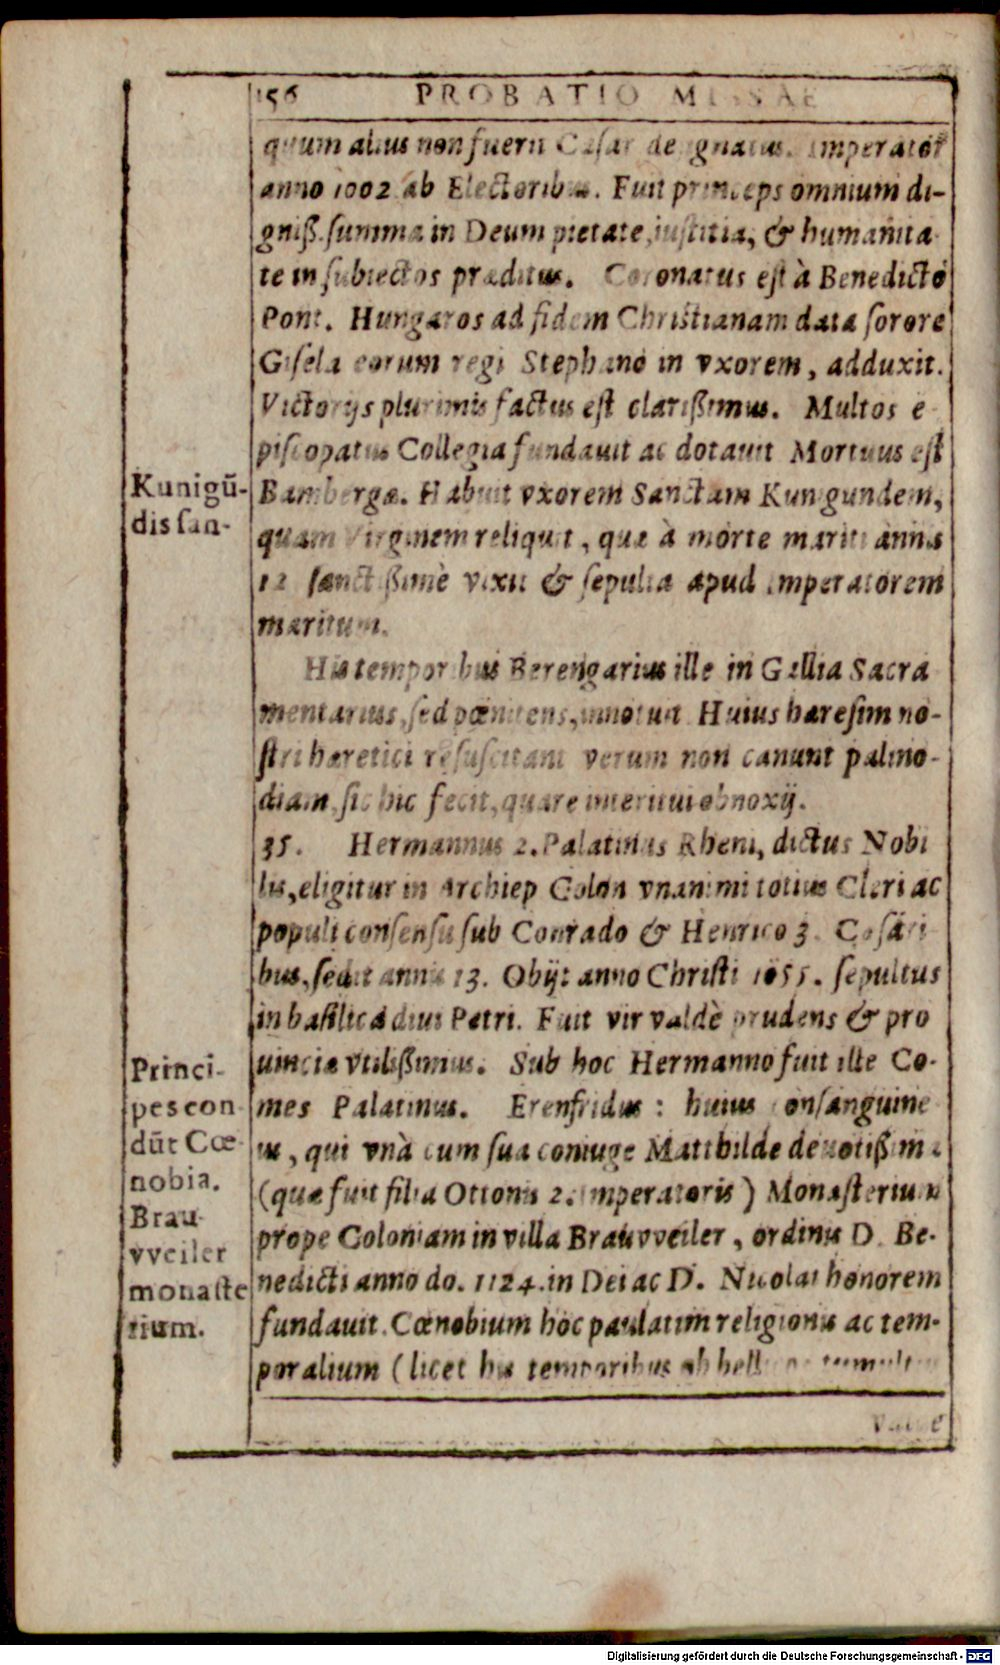 156 PROBATIO MISSAE
quum alius non fuerit Cæsar designatus. Imperator
anno 1002 ab Electoribus. Fuit princeps omnium di-
gniß. summa in Deum pietate, iustitia, & humanita
te in subiectos præditus. Coronatus est à Benedicto
Pont. Hungaros ad fidem Christianam data sorore
Gisela eorum regi Stephano in vxorem, adduxit.
Victorijs plurimis factus est clarißimus. Multos e
piscopatus Collegia fundauit ac dotauit Mortuus est
Bambergæ. Habuit vxorem Sanctam Kunigundem,
quam Virginem reliquit, quæ à morte mariti annis
12 sanctißimè vixit & sepulta apud Imperatorem
maritum.
Kunigũ-
dis san-
His temporibus Berengarius ille in Gallia Sacra
mentarius, sed pœnitens, innotuit Huius hæresim no-
stri hæretici resuscitant verum non canunt palino-
diam, sic hic fecit, quare interitui obnoxij.
35. Hermannus 2. Palatinus Rheni, dictus Nobi
lis, eligitur in Archiep Colon vnanimi totius Cleri ac
populi consensu sub Conrado & Henrico 3. Cæsari
bus, sedit annis 13. Obijt anno Christi 1055. sepultus
in basilica diui Petri. Fuit vir valdè prudens & pro
uinciæ vtilißimus. Sub hoc Hermanno fuit ille Co-
mes Palatinus. Erenfridus : huius consanguine
us, qui vnà cum sua coniuge Matthilde deuotißima
(quæ fuit filia Ottonis 2. Imperatoris) Monasterium
prope Coloniam in villa Brauvveiler, ordinis D. Be-
nedicti anno do. 1124. in Dei ac D. Nicolai honorem
fundauit. Cœnobium hoc paulatim religionis ac tem-
poralium (licet his temporibus ob bell
Princi-
pes con
dũt Cœ
nobia.
Brau-
vveiler
monaste
rium.
Digitalisierung gefördert durch die Deutsche Forschungsgemeinschaft - DFG